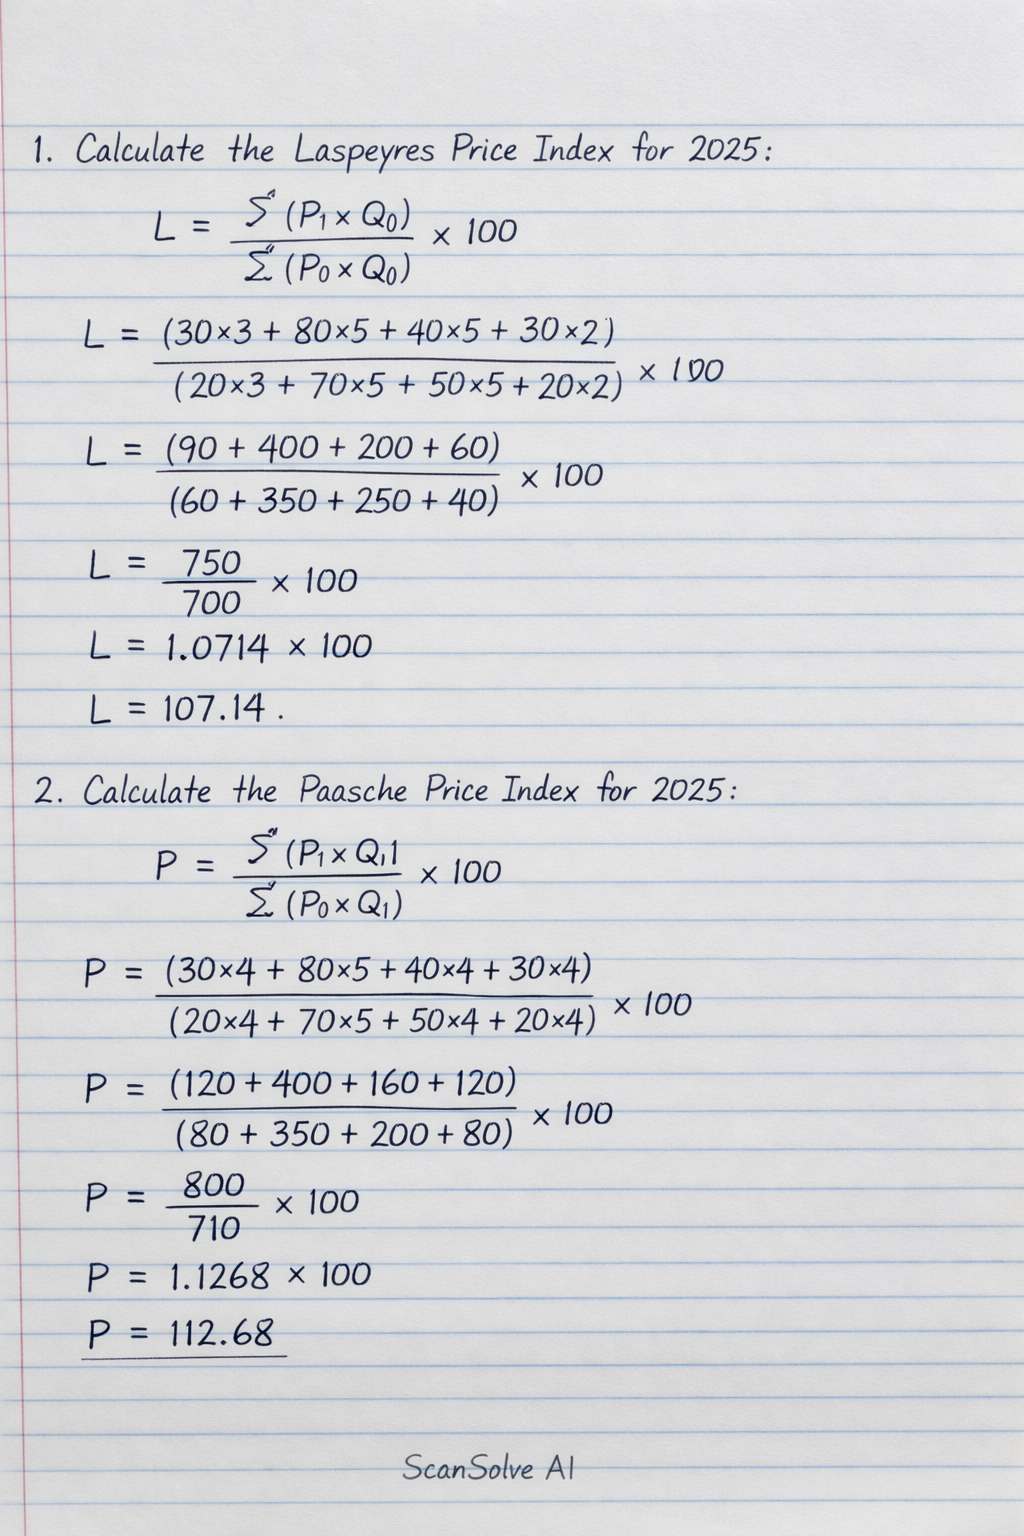 1. Calculate the Laspeyres Price Index for 2025:
L = Σ (P₁ × Q₀) / Σ (P₀ × Q₀) × 100
L = (30×3 + 80×5 + 40×5 + 30×2) / (20×3 + 70×5 + 50×5 + 20×2) × 100
L = (90 + 400 + 200 + 60) / (60 + 350 + 250 + 40) × 100
L = 750 / 700 × 100
L = 1.0714 × 100
L = 107.14.
2. Calculate the Paasche Price Index for 2025:
P = Σ (P₁ × Q₁1 / Σ (P₀ × Q₁) × 100
P = (30×4 + 80×5 + 40×4 + 30×4) / (20×4 + 70×5 + 50×4 + 20×4) × 100
P = (120 + 400 + 160 + 120) / (80 + 350 + 200 + 80) × 100
P = 800 / 710 × 100
P = 1.1268 × 100
P = 112.68
ScanSolve AI